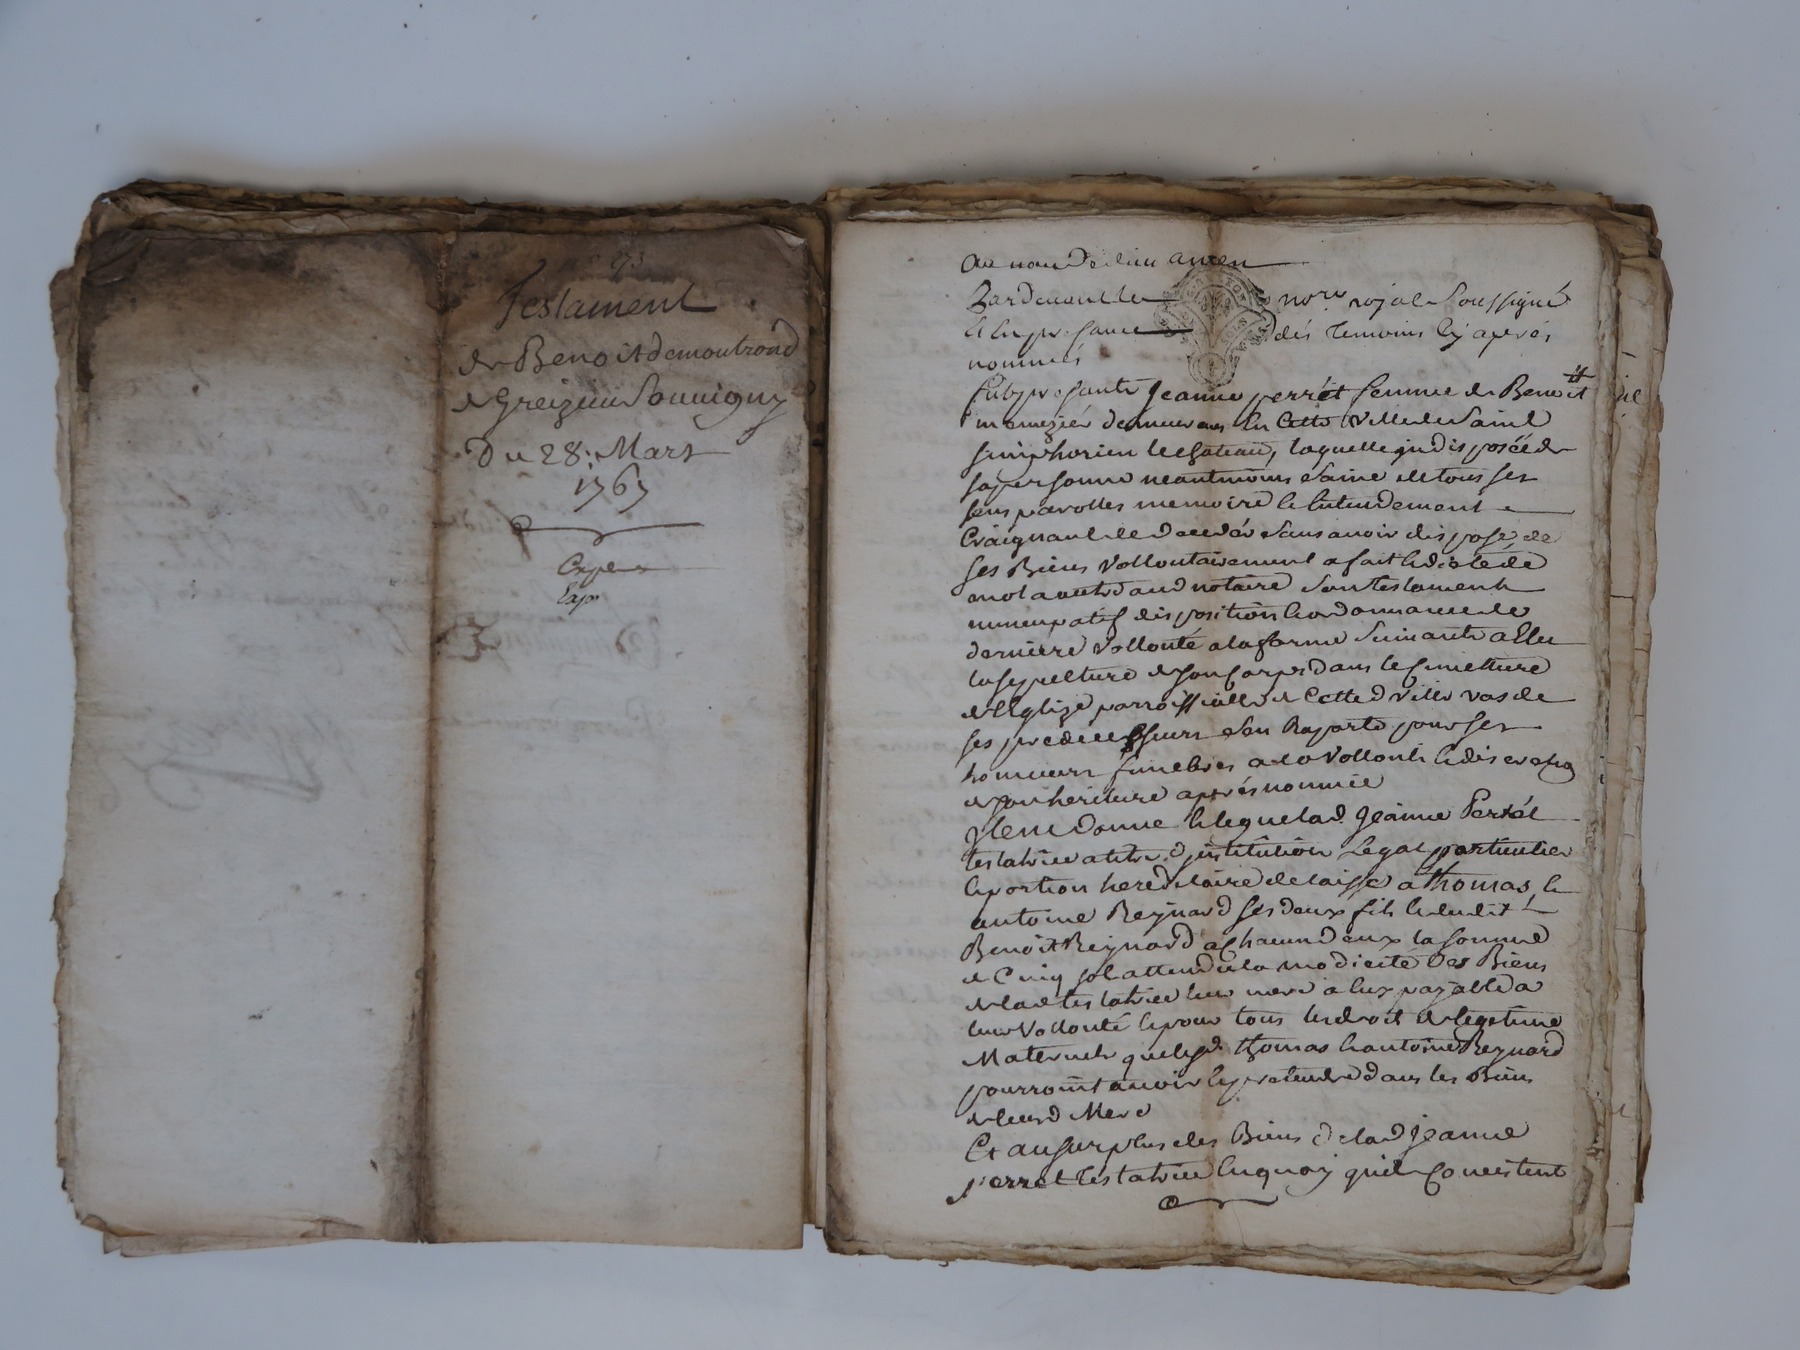 273
Testament
de Benoit demontrond
de Greizieu Souvigny
Du 28: Mars
1767
Expe
Au nom de dieu amen
Pardevant le nore. royal Soussigné
et en presance des temoins cy aprés
nommés
fut presante Jeanne perrét femme de Benoit
demeurant en Cette Ville de Saint
simphorien le chateau, laquelle indisposée de
sa personne neantmoins Saine de tous ses
sens parolles memoire et Entendement
Craignant de deceder Sans avoir disposé de
ses Biens Vollontairement a fait et dicté de
mot a autre aud notaire Son testament
nuncupatif disposition et ordonnance de
derniere Vollonté a la forme Suivante a Elu
la sepulture de son Corps dans le simettiere
de l'Eglize parroissialle de Cette d Ville vas de
ses predecesseurs S'en Raporte pour ses
honneurs funebres a la Vollonté et discretion
de son heritiere aprés nommée
Item donne et legue lad. Jeanne Perrét
testatrice a titre d'institution Legat particulier
et portion hereditaire delaisse a thomas et
antoine Reynard ses deux fils et dudit
Benoit Reynard a chacun d'eux la somme
de Cinq sol attendu la modicité des Biens
de lad testatrice leur mere a Eux payable a
leur Vollonté et pour tous les droit de legitime
Maternels que lesd. thomas et antoine Reynard
pourroint avoir et pretendre dans les Biens
de leurd Mere
Et au surplus des Biens de lad Jeanne
perret testatrice En quoy qu'il Consistent